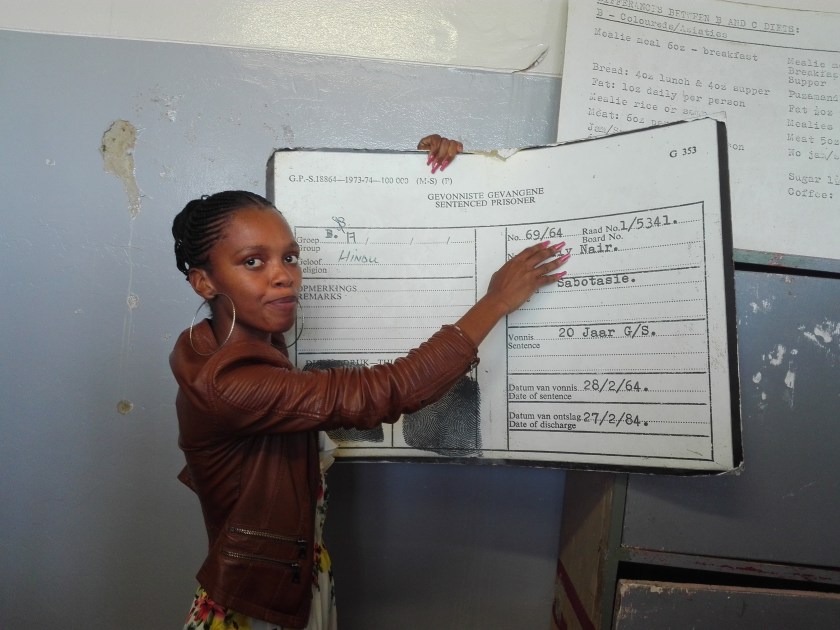 DIFFERANCES BETWEEN B AND C DIETS:
B - Coloureds/Asiatics
Mealie meal 6oz - breakfast
Bread: 4oz lunch & 4oz supper
Fat: 1oz daily per person
Mealie rice or
Meat: 6oz
Jam/
Mealie
Breakfast
Supper
Puzamand
Fat
Mealies
Meat 5oz
No jam/
Sugar
Coffee:
G.P.-S.18864—1973-74—100 000 (M-S) (P)
G 353
GEVONNISTE GEVANGENE
SENTENCED PRISONER
Groep
Group
B. A
Geloof
Religion
HINDU
OPMERKINGS
REMARKS
No. 69/64
Raad No. 1/5341.
Board No.
Nair.
Sabotasie.
Vonnis
Sentence
20 Jaar G/S.
Datum van vonnis
Date of sentence
28/2/64.
Datum van ontslag
Date of discharge
27/2/84.